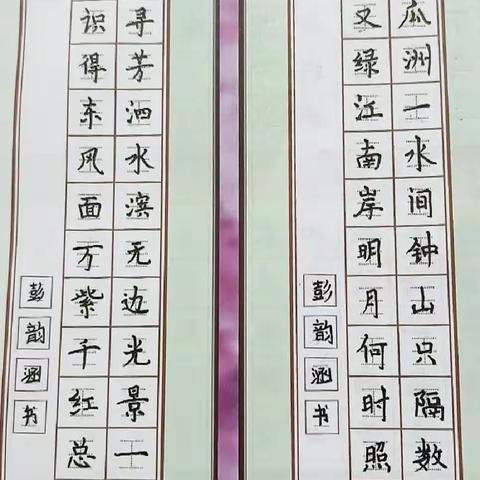 瓜洲一水间钟山只隔数
又绿江南岸明月何时照
彭韵涵书
寻芳泗水滨无边光景一
识得东风面万紫千红总
彭韵涵书